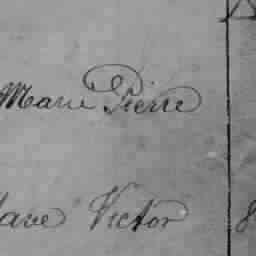 Marie Pierre
Victor